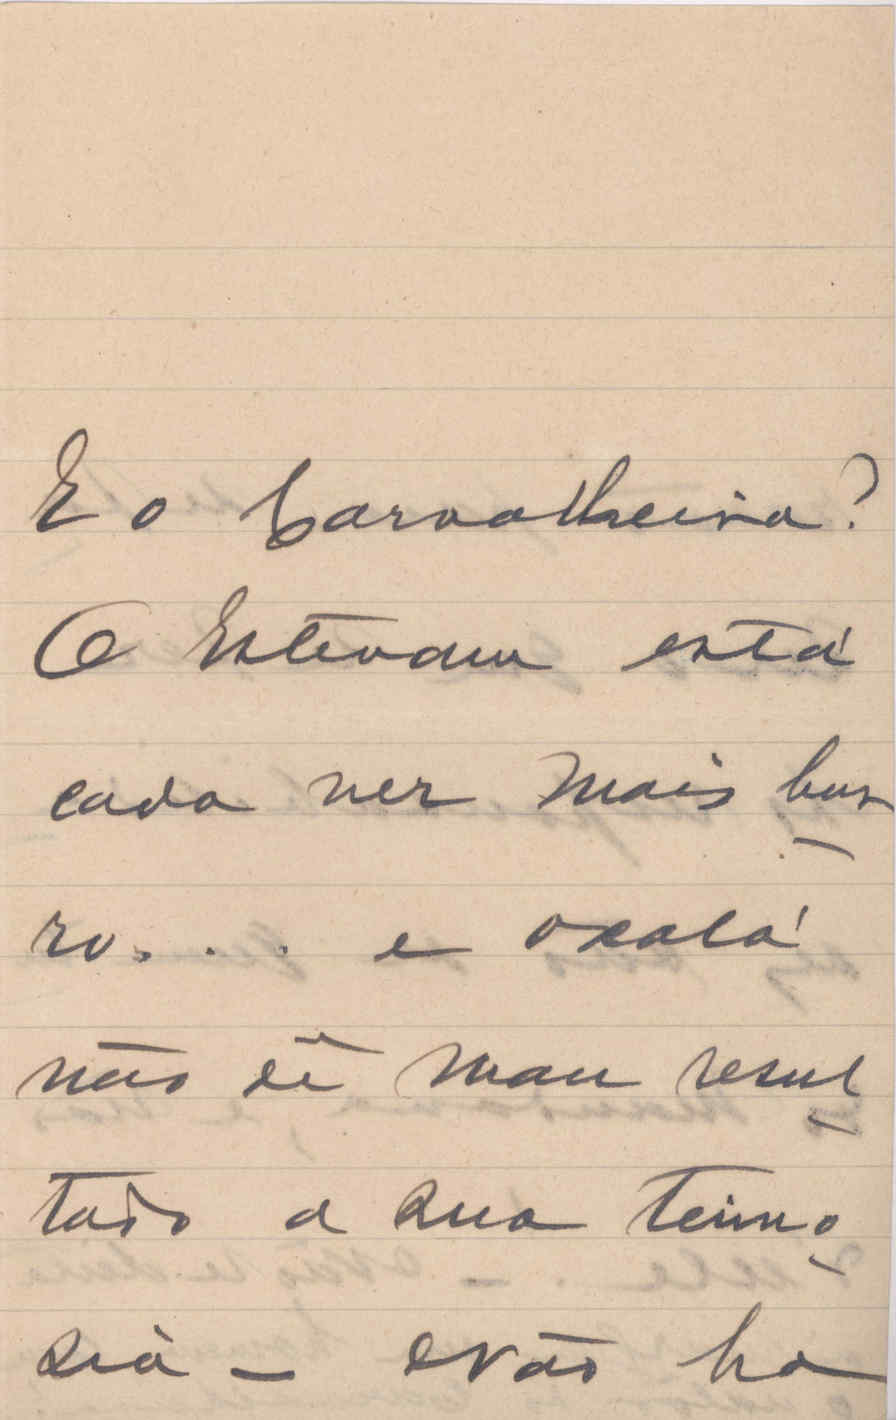 E o Carvalheira?
O Estevam está
cada vez mais bur-
ro. . . . e oxalá
não dê mau resul-
tado a sua teimo-
sia - Não ha